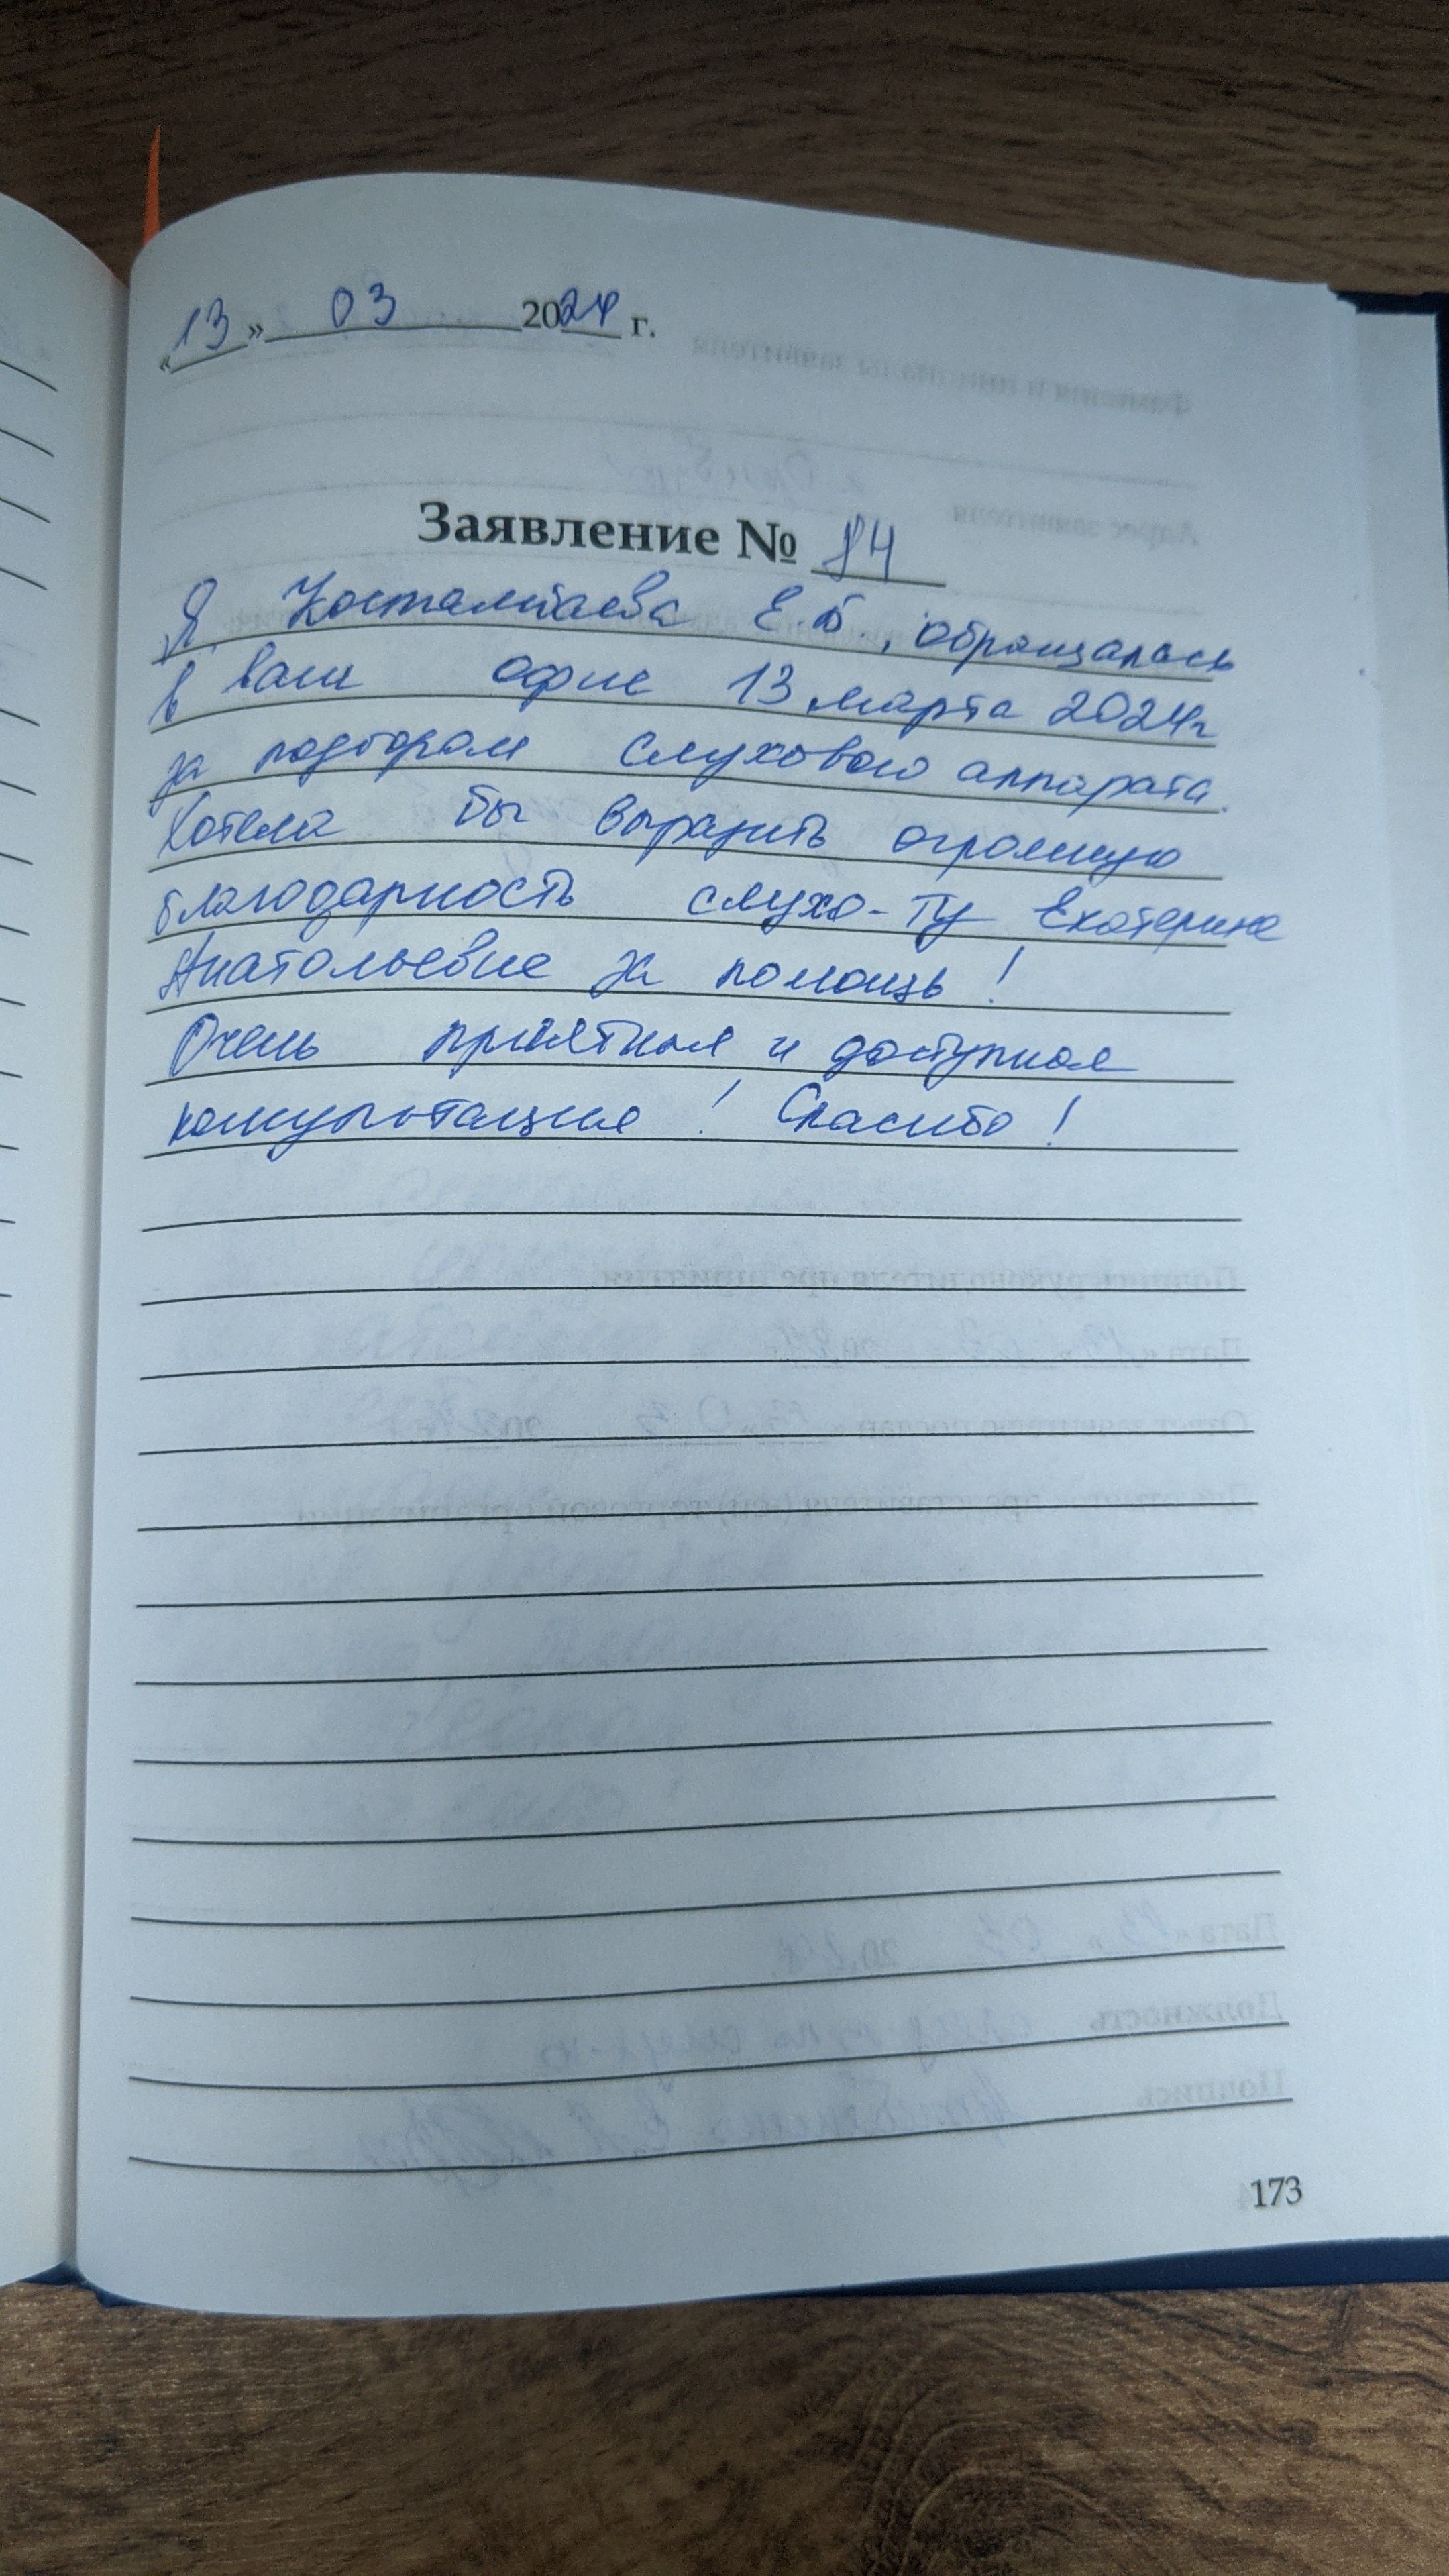 «13» 03 2024 г.
Заявление № 84
Я Костамтаева Е.Б., обращалась
в ваш офис 13 марта 2024г
за подбором слухового аппарата.
Хотела бы выразить огромную
благодарность слухо-ту Екатерине
Анатольевне за помощь!
Очень приятная и доступная
консультация! Спасибо!
173